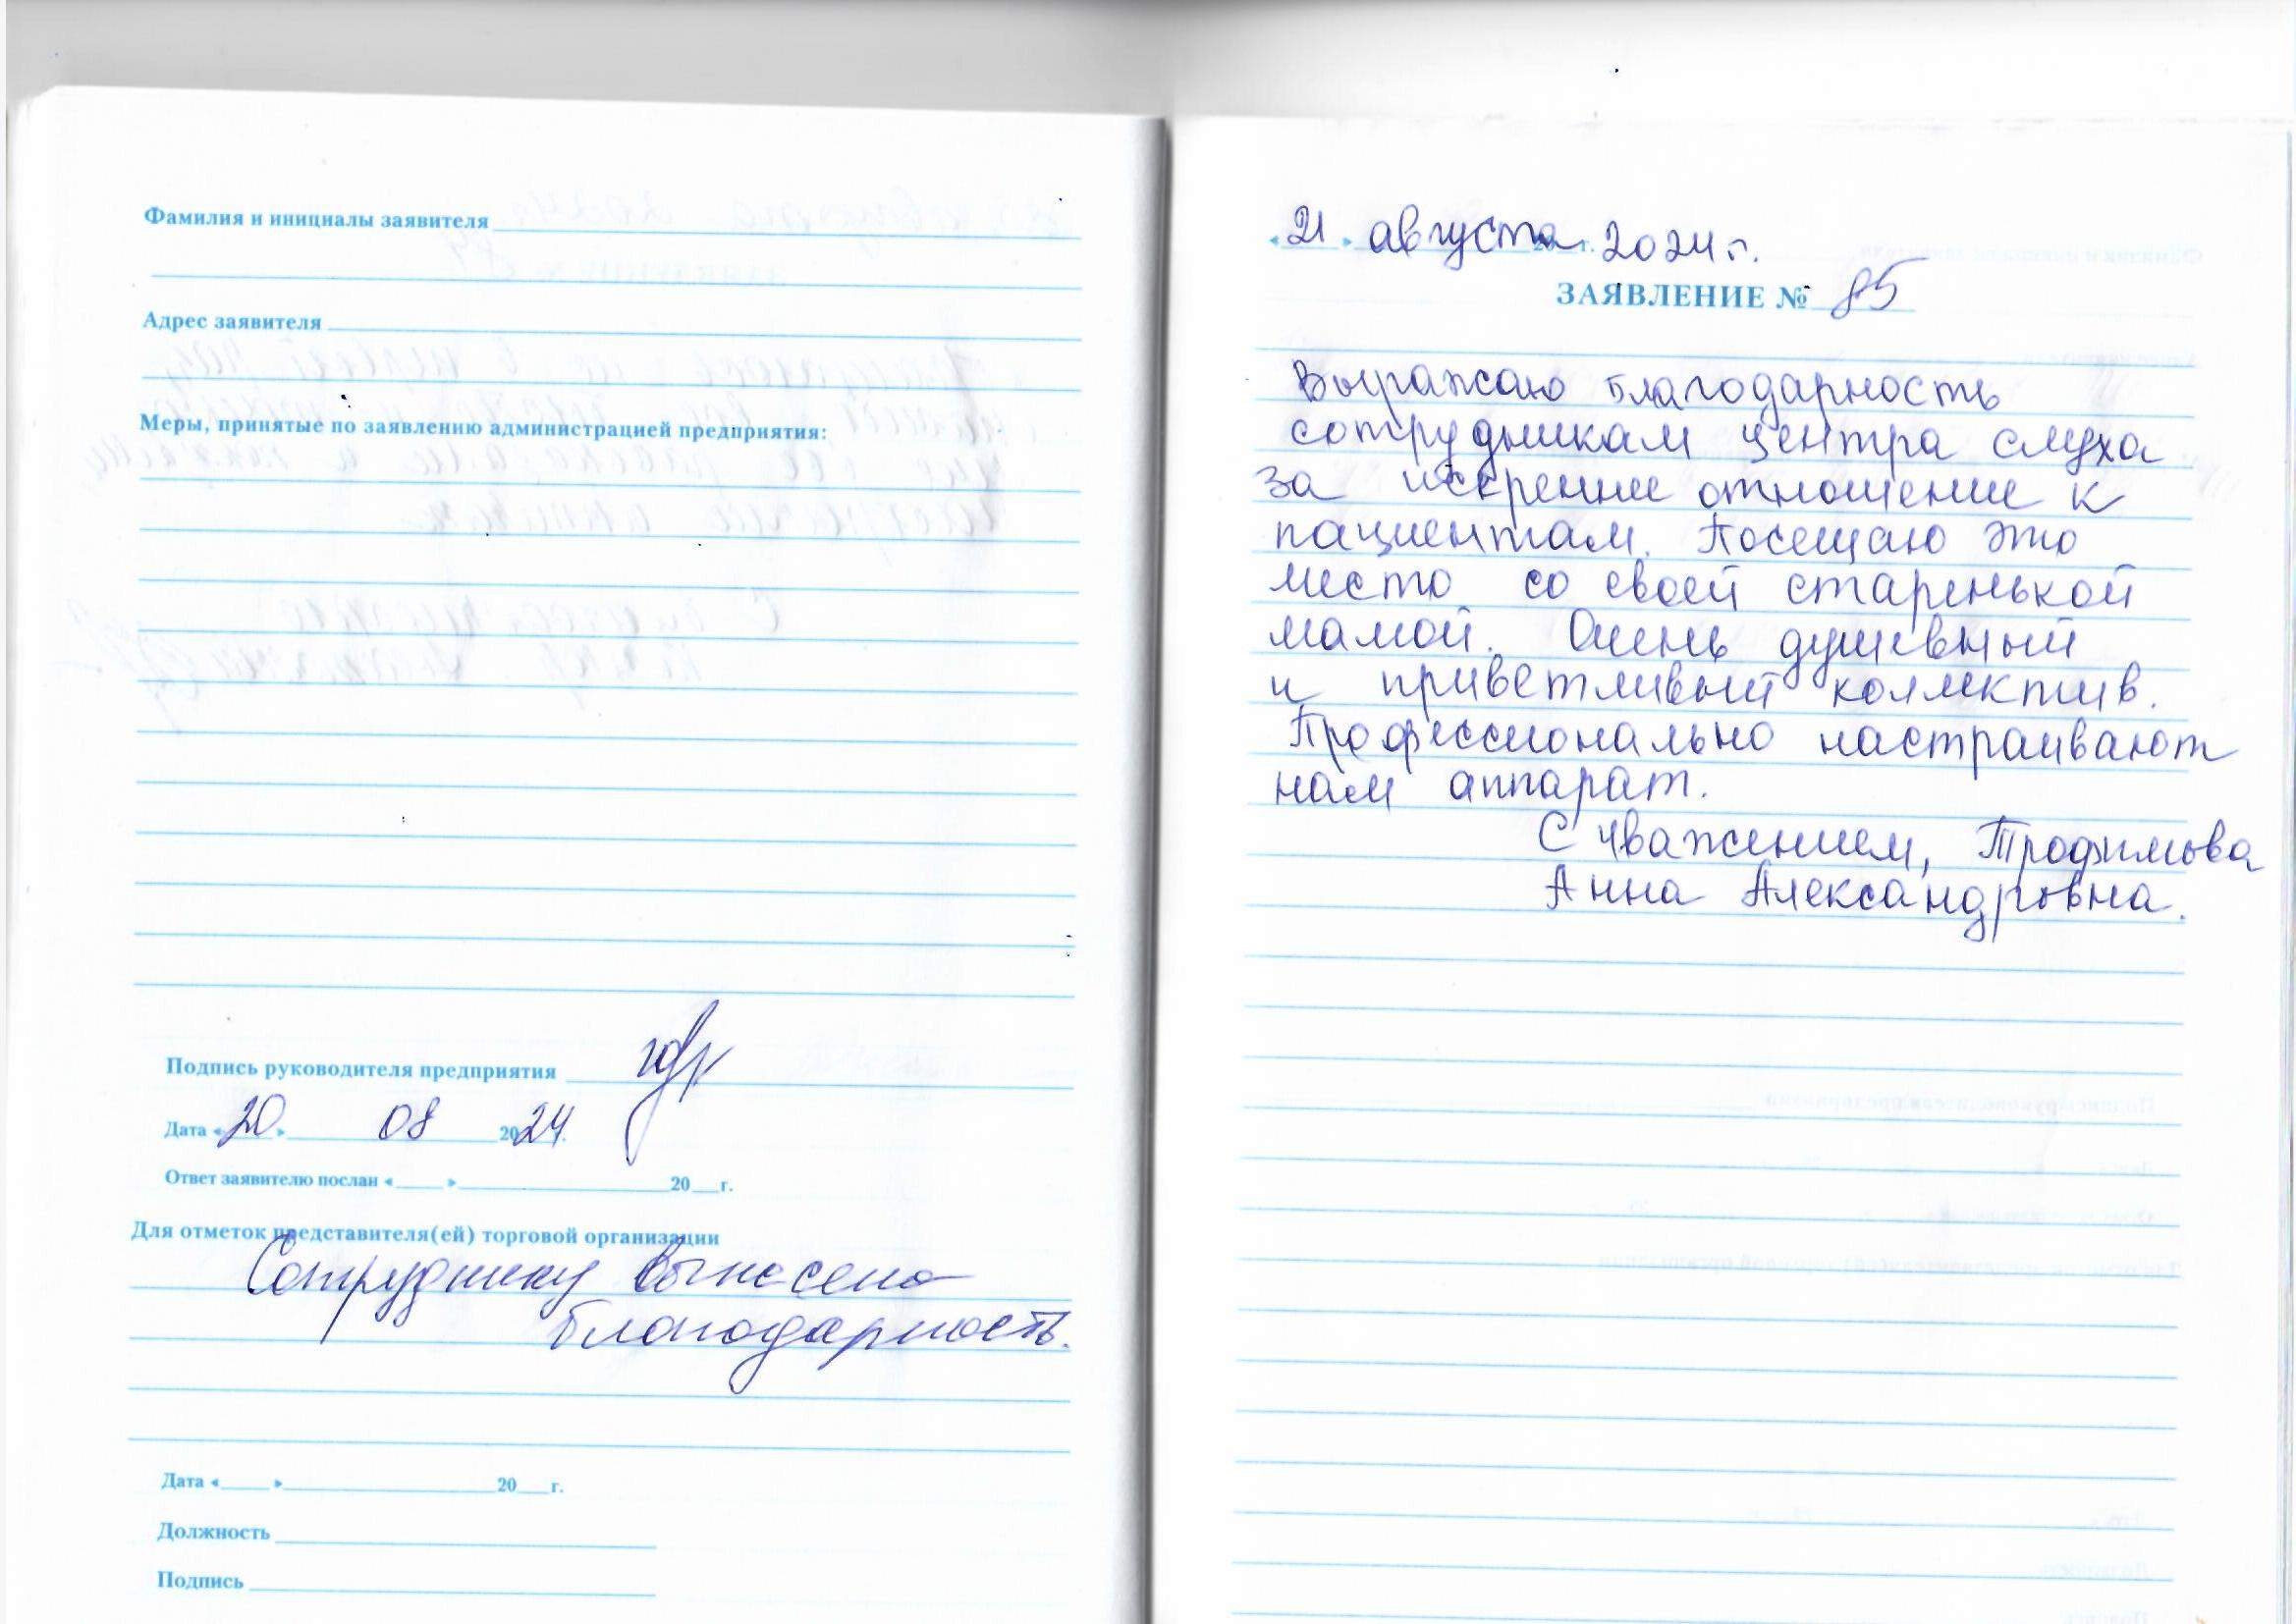 Фамилия и инициалы заявителя
Адрес заявителя
Меры, принятые по заявлению администрацией предприятия:
Подпись руководителя предприятия
Дата «20» 08 2024г.
Ответ заявителю послан «____» ____ 20__г.
Для отметок представителя(ей) торговой организации
Сотруднику вынесена
благодарность.
Дата «____» ____ 20__г.
Должность
Подпись
«21» августа 2024 г.
ЗАЯВЛЕНИЕ № 85
Выражаю благодарность
сотрудникам центра слуха
за искренне отношение к
пациентам. Посещаю это
место со своей старенькой
мамой. Очень душевный
и приветливый коллектив.
Профессионально настраивают
нам аппарат.
С уважением, Трофимова
Анна Александровна.